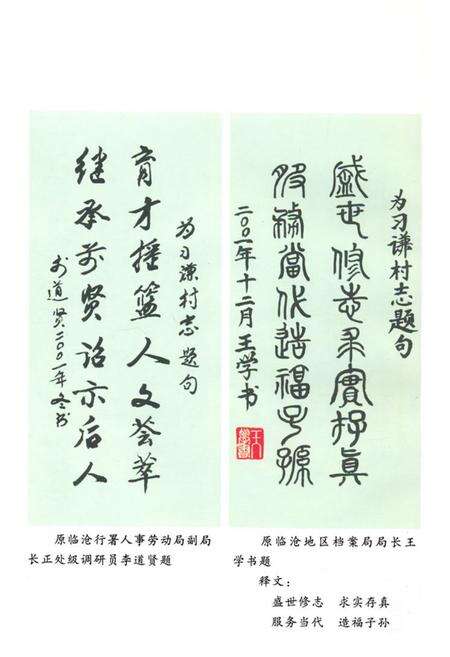 为刁谦村志题句
育才摇篮人文荟萃
继承前贤诏示后人
李道贤二〇〇一年冬书
为刁谦村志题句
盛世修志求實存真
服務當代造福子孫
二〇〇一年十二月王学书
原临沧行署人事劳动局副局
长正处级调研员李道贤题
原临沧地区档案局局长王
学书题
释文：
盛世修志 求实存真
服务当代 造福子孙